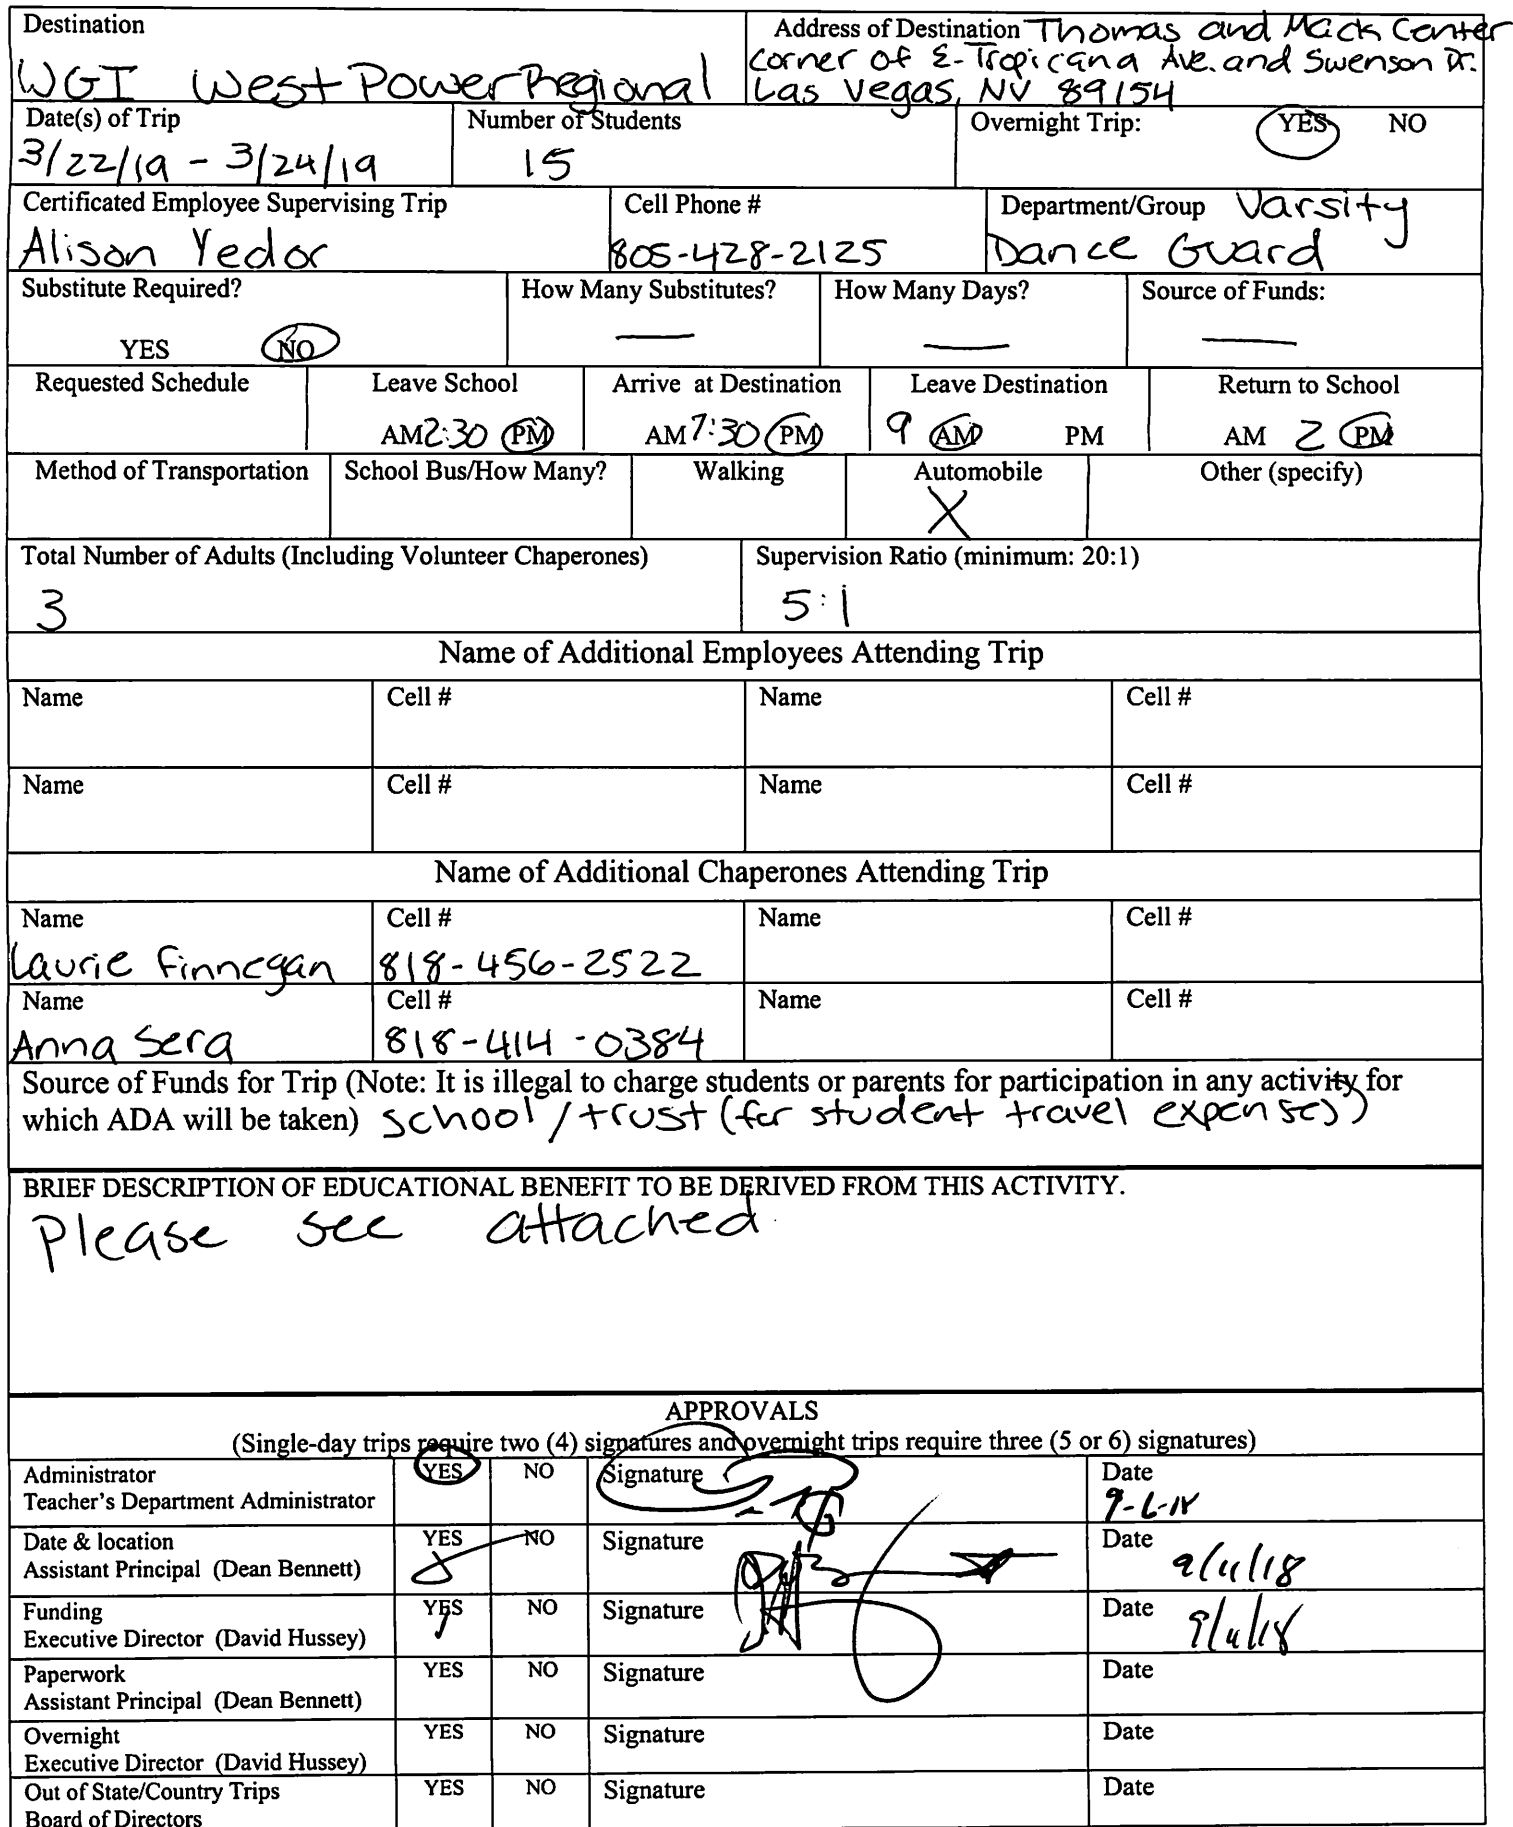 Destination
WGI West Power Regional
Address of Destination Thomas and Mack Center
corner of E-Tropicana Ave. and Swenson Dr.
Las Vegas, NV 89154
Date(s) of Trip
3/22/19 - 3/24/19
Number of Students
15
Overnight Trip: YES NO
Certificated Employee Supervising Trip
Alison Yedor
Cell Phone #
805-428-2125
Department/Group Varsity
Dance Guard
Substitute Required?
YES NO
How Many Substitutes?
—
How Many Days?
—
Source of Funds:
—
Requested Schedule
Leave School
AM 2:30 PM
Arrive at Destination
AM 7:30 PM
Leave Destination
9 AM PM
Return to School
AM 2 PM
Method of Transportation
School Bus/How Many?
Walking
Automobile
X
Other (specify)
Total Number of Adults (Including Volunteer Chaperones)
3
Supervision Ratio (minimum: 20:1)
5:1
Name of Additional Employees Attending Trip
Name Cell # Name Cell #
Name Cell # Name Cell #
Name of Additional Chaperones Attending Trip
Name Cell # Name Cell #
Laurie Finnegan 818-456-2522
Name Cell # Name Cell #
Anna Sera 818-414-0384
Source of Funds for Trip (Note: It is illegal to charge students or parents for participation in any activity for
which ADA will be taken) school/trust (for student travel expenses)
BRIEF DESCRIPTION OF EDUCATIONAL BENEFIT TO BE DERIVED FROM THIS ACTIVITY.
Please see attached
APPROVALS
(Single-day trips require two (4) signatures and overnight trips require three (5 or 6) signatures)
Administrator YES NO Signature Date
Teacher's Department Administrator 9-6-18
Date & location YES NO Signature Date
Assistant Principal (Dean Bennett) 9/11/18
Funding YES NO Signature Date
Executive Director (David Hussey) 9/11/18
Paperwork YES NO Signature Date
Assistant Principal (Dean Bennett)
Overnight YES NO Signature Date
Executive Director (David Hussey)
Out of State/Country Trips YES NO Signature Date
Board of Directors